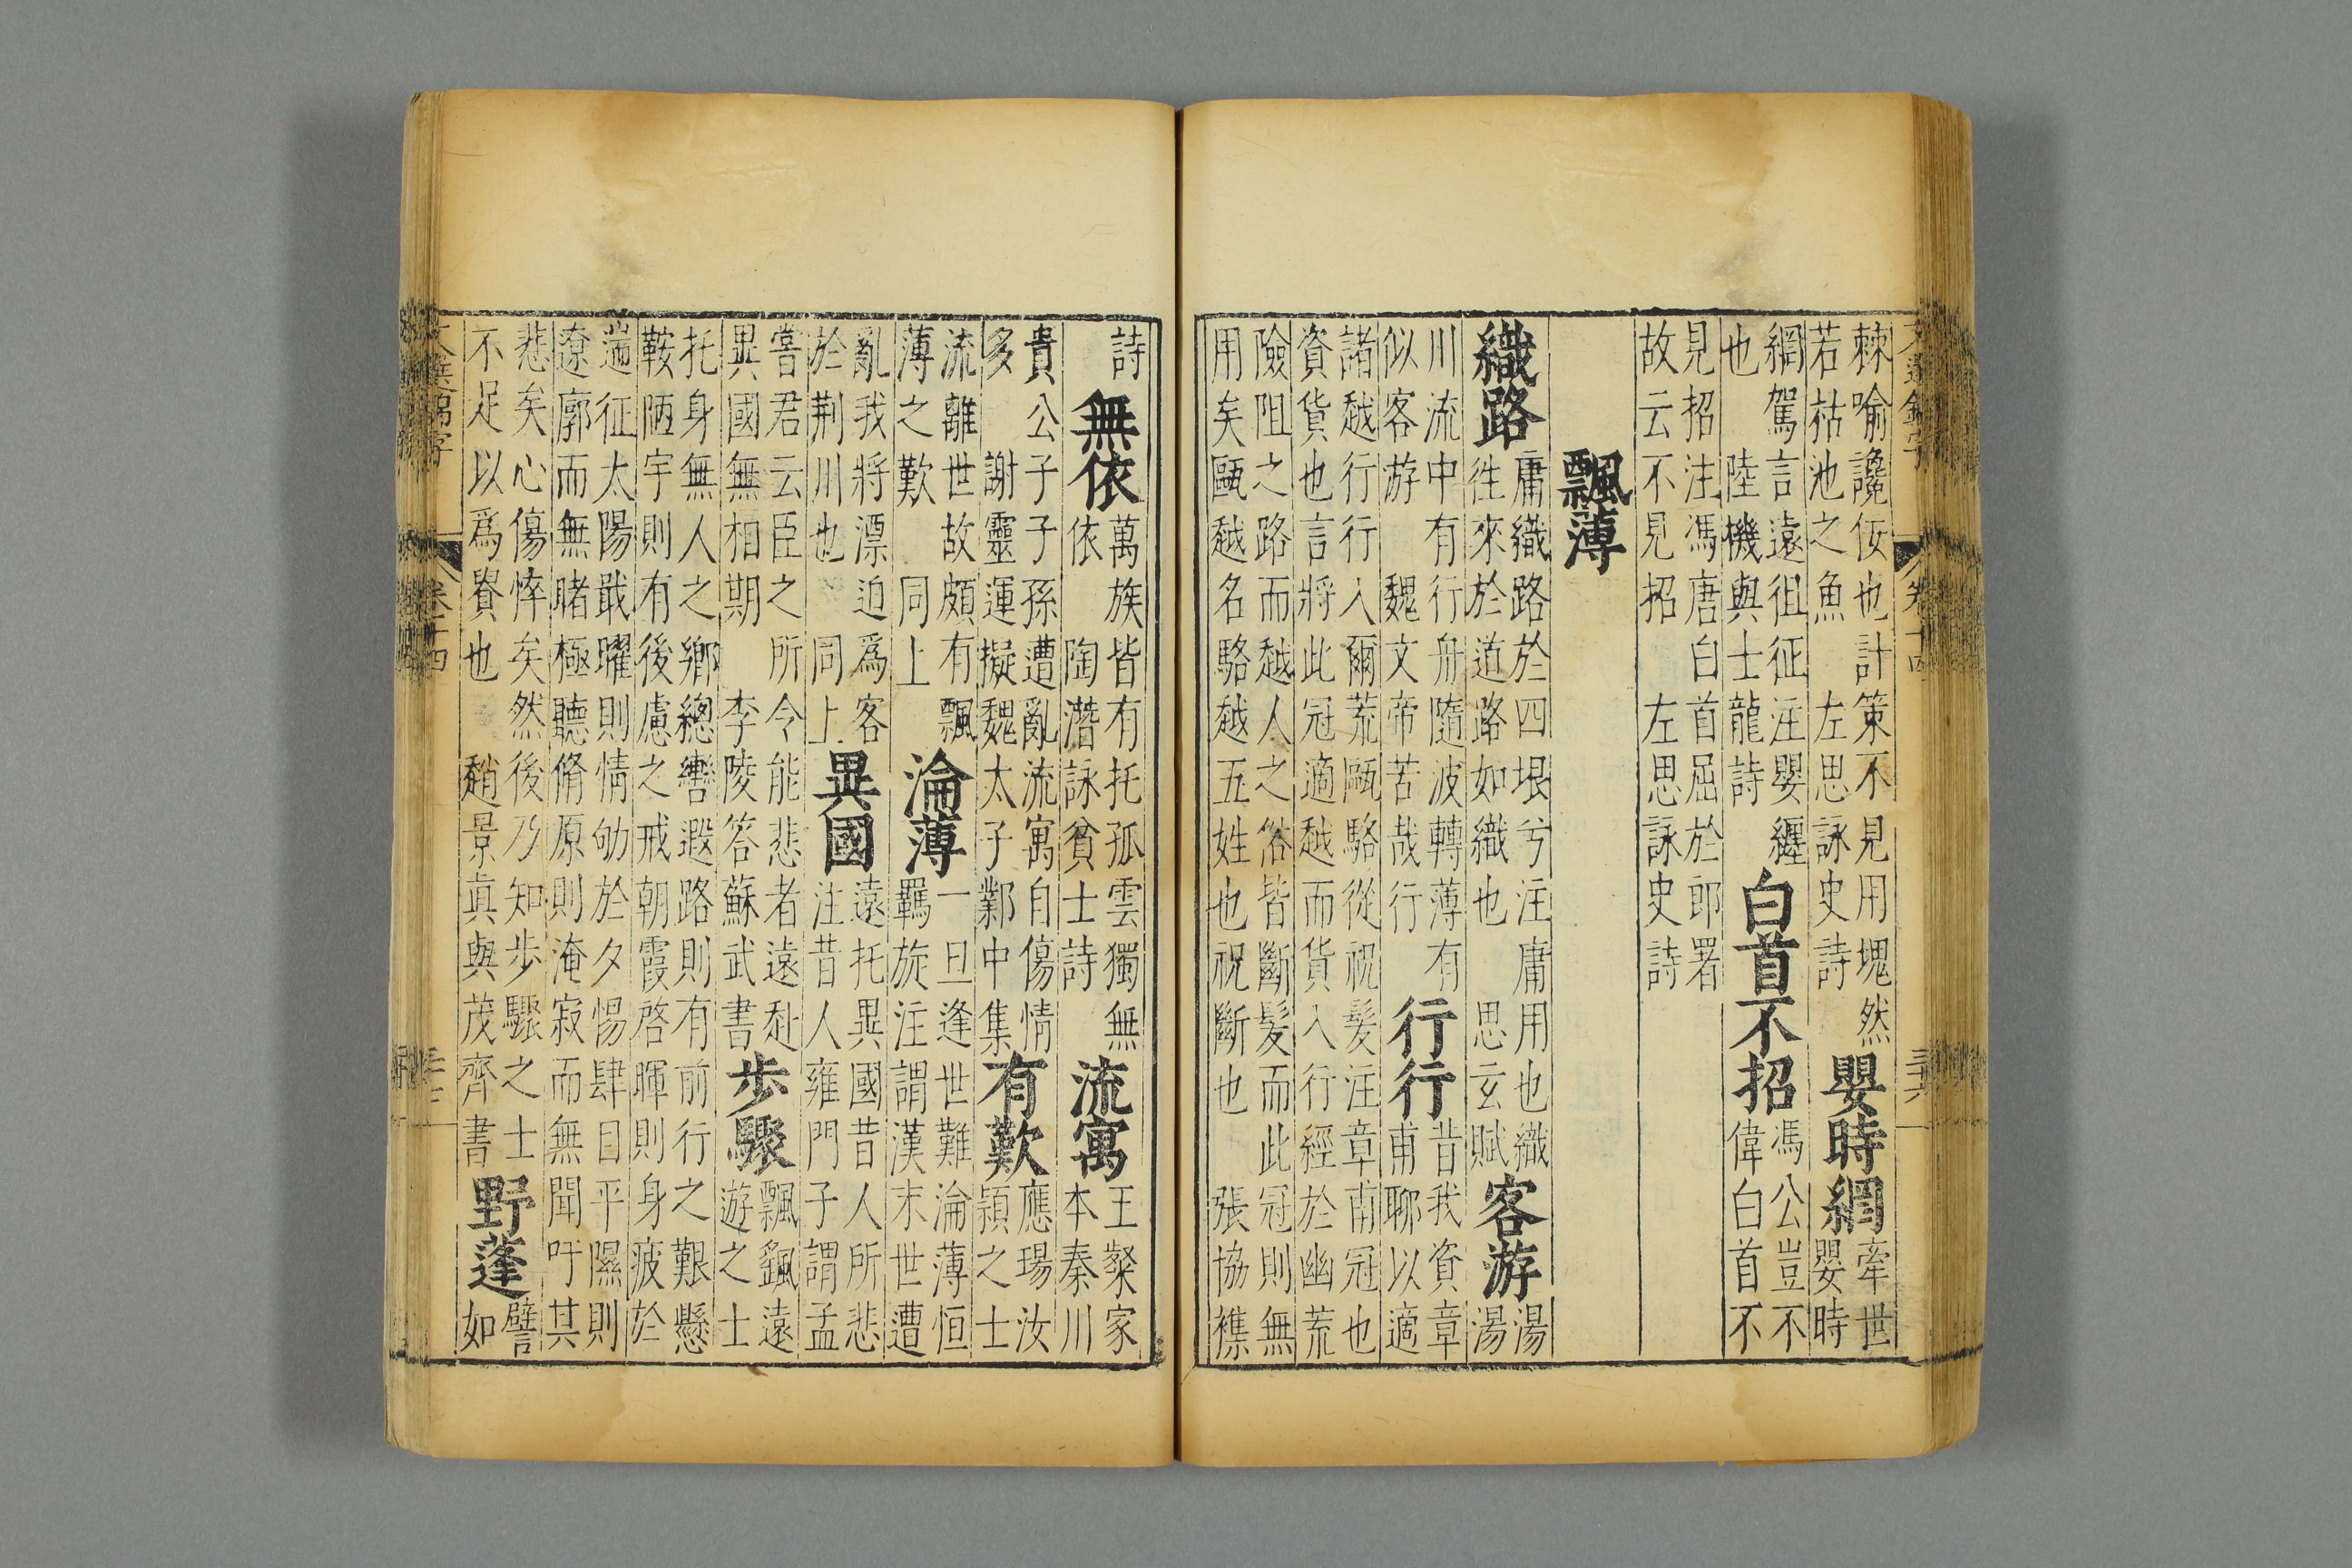 棘喻讒佞也計策不見用塊然
若枯池之魚 左思詠史詩
嬰時網
牽世
嬰時
網駕言遠徂征注嬰纏
也 陸機與士龍詩
白首不招
馮公豈不
偉白首不
見招注馮唐白首屈於郎署
故云不見招 左思詠史詩
飄薄
織路
庸織路於四垠兮注庸用也織
徃來於道路如織也 思玄賦
客游
湯
湯
川流中有行舟隨波轉薄有
似客游 魏文帝苦哉行
行行
昔我資章
甫聊以適
諸越行行入爾荒甌駱從祝髮注章甫冠也
資貨也言將此冠適越而貨入行經於幽荒
險阻之路而越人之俗皆斷髮而此冠則無
用矣甌越名駱越五姓也祝斷也 張協襍
詩
無依
萬族皆有托孤雲獨無
依 陶潛詠貧士詩
流寓
王粲家
本秦川
貴公子子孫遭亂流寓自傷情
多 謝靈運擬魏太子鄴中集
有歎
應瑒汝
潁之士
流離世故頗有飄
薄之歎 同上
淪薄
一旦逢世難淪薄恒
羈旅注謂漢末世遭
亂我將漂迫爲客
於荆川也 同上
異國
遠托異國昔人所悲
注昔人雍門子謂孟
嘗君云臣之所令能悲者遠赴
異國無相期 李陵答蘇武書
步驟
飄颻遠
遊之士
托身無人之鄉總轡遐路則有前行之艱懸
鞍陋宇則有後慮之戒朝霞啓暉則身疲於
遄征太陽戢曜則情劬於夕惕肆目平隰則
遼廓而無睹極聽脩原則淹寂而無聞吁其
悲矣心傷悴矣然後乃知步驟之士
不足以爲貴也 趙景真與茂齊書
野蓬
譬
如
卷十四